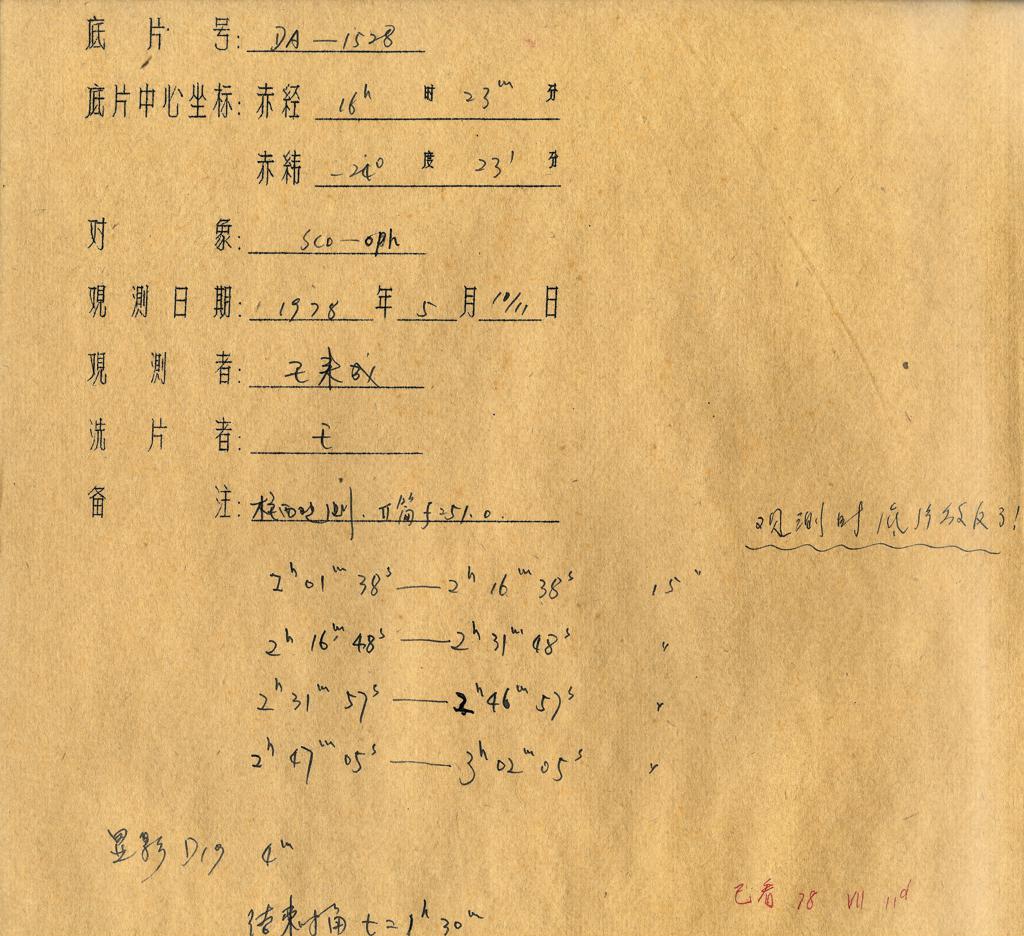 底片号: DA—1528
底片中心坐标: 赤经 16ʰ 时 23ᵐ 分
赤纬 -24° 度 23′ 分
对象: Sco—Oph
观测日期: 1978 年 5 月 10/11 日
观测者: 王来
洗片者: 王
备注: 观测. II筒 f=51.0.
观测时底片放反了!
2ʰ01ᵐ38ˢ — 2ʰ16ᵐ38ˢ 15ᵐ
2ʰ16ᵐ48ˢ — 2ʰ31ᵐ48ˢ 〃
2ʰ31ᵐ57ˢ — 2ʰ46ᵐ57ˢ 〃
2ʰ47ᵐ05ˢ — 3ʰ02ᵐ05ˢ 〃
显影 D19 4ᵐ
结束时角 t=1ʰ30ᵐ
已看 78 VII 11ᵈ